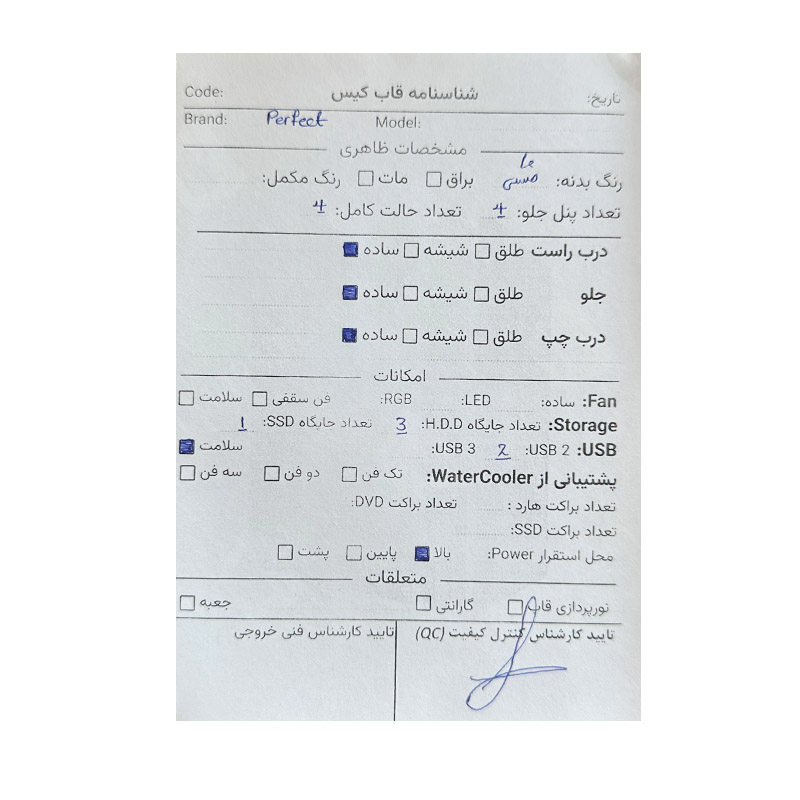 تاریخ: شناسنامه قاب کیس Code:
Brand: Perfect Model:
مشخصات ظاهری
رنگ بدنه: مسی براق مات رنگ مکمل:
تعداد پنل جلو: 4 تعداد حالت کامل: 4
درب راست طلق شیشه ساده
جلو طلق شیشه ساده
درب چپ طلق شیشه ساده
امکانات
Fan: ساده: LED: RGB: فن سقفی سلامت
Storage: تعداد جایگاه H.D.D: 3 تعداد جایگاه SSD: 1
USB: USB 2: 2 USB 3: سلامت
پشتیبانی از WaterCooler: تک فن دو فن سه فن
تعداد براکت هارد : تعداد براکت DVD:
تعداد براکت SSD:
محل استقرار Power: بالا پایین پشت
متعلقات
نورپردازی قاب گارانتی جعبه
تایید کارشناس کنترل کیفیت (QC) تایید کارشناس فنی خروجی